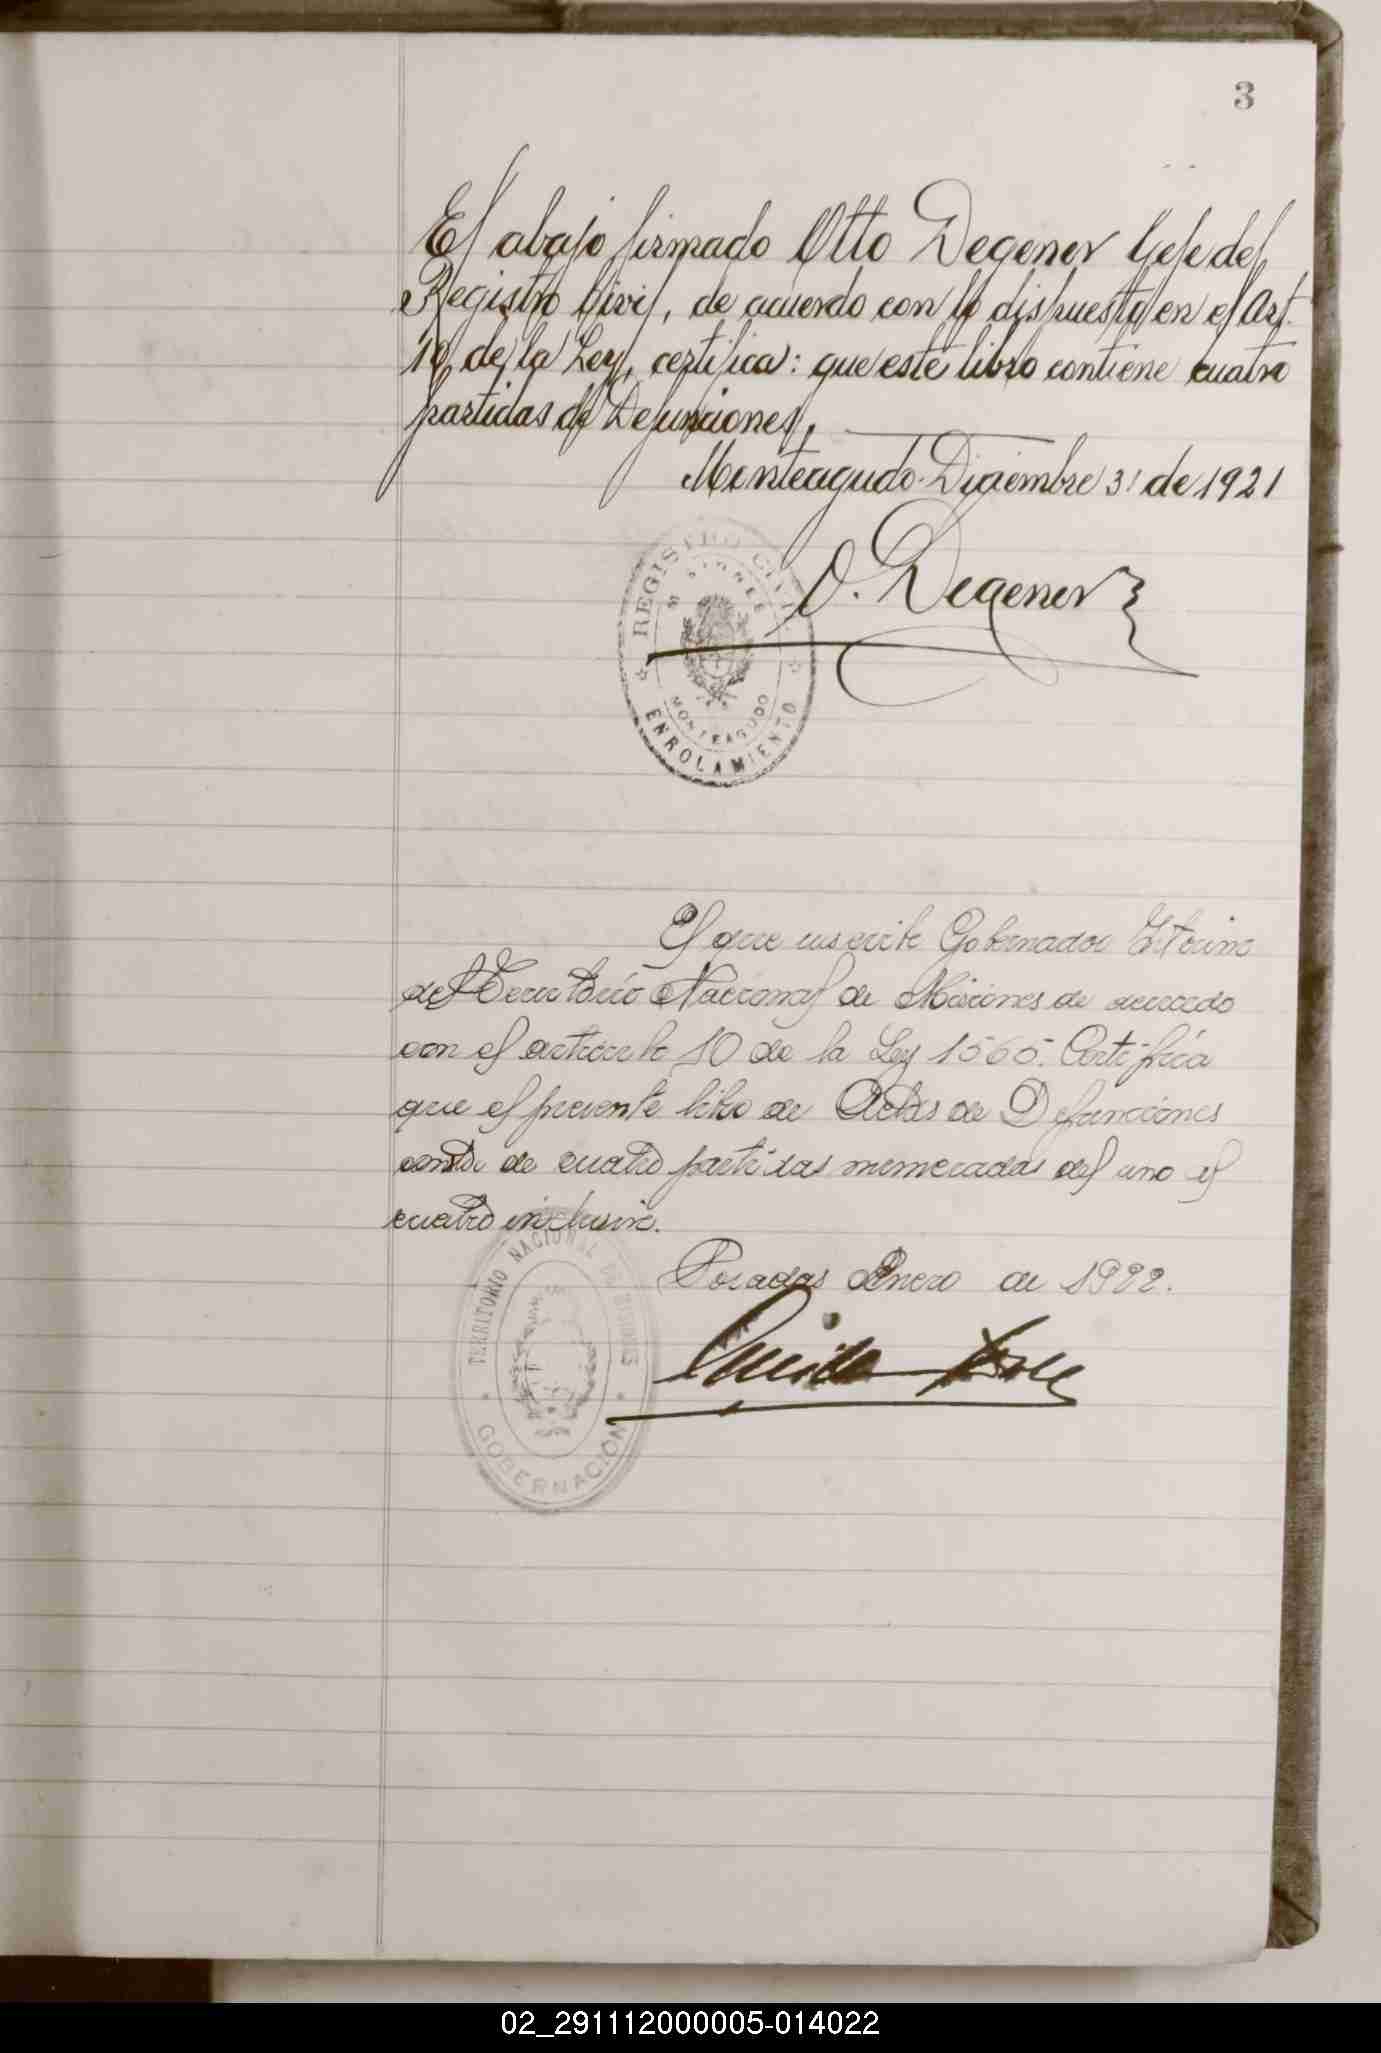 3
El abajo firmado Otto Degener Gefe del
Registro Civil, de acuerdo con lo dispuesto en el Art.
10 de la Ley, certifica: que este libro contiene cuatro
partidas de Defunciones.
Monteagudo Diciembre 31 de 1921
O. Degener
REGISTRO CIVIL
MISIONES
MONTEAGUDO
ENROLAMIENTO
El que suscribe Gobernador Interino
del Territorio Nacional de Misiones de acuerdo
con el articulo 10 de la Ley 1565. Certifica
que el presente libro de Actas de Defunciones
consta de cuatro partidas numeradas del uno al
cuatro inclusive.
Posadas Enero de 1922.
TERRITORIO NACIONAL DE MISIONES
GOBERNACIÓN
02_291112000005-014022